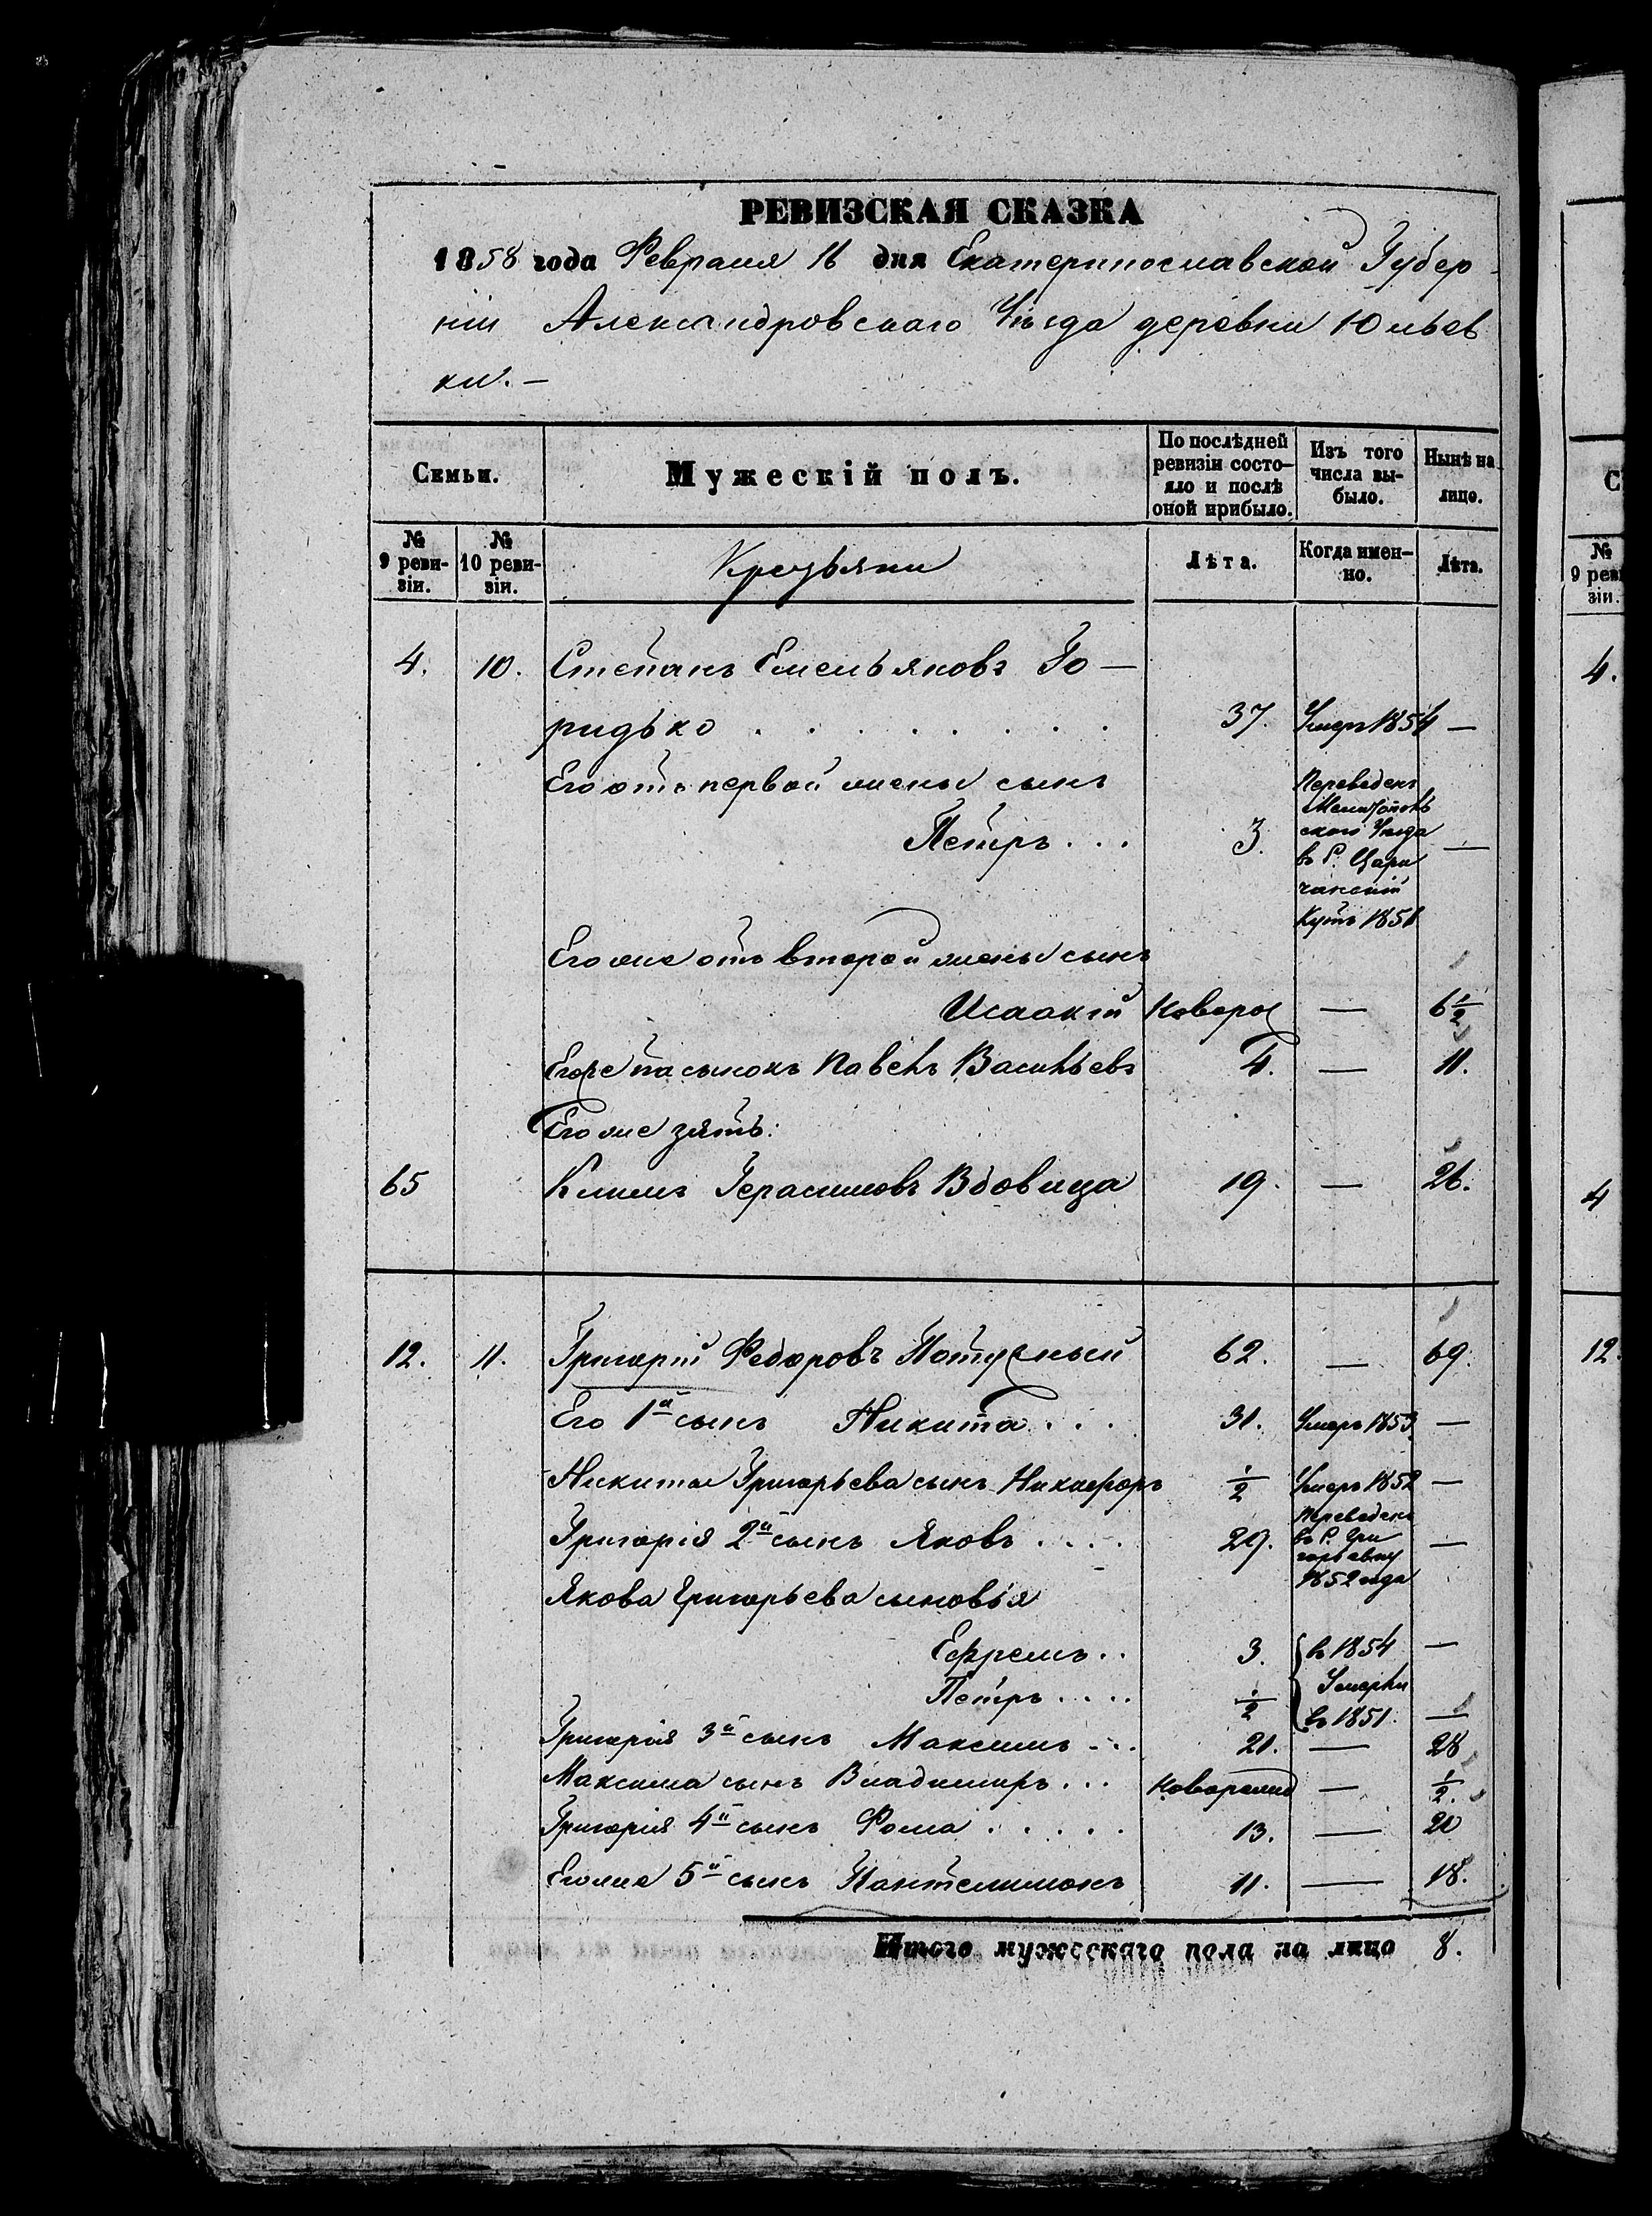 РЕВИЗСКАЯ СКАЗКА
1858 года Февраля 16 дня Екатеринославской Губер-
ніи Александровскаго Уѣзда деревни Юльев
ки. —
Семьи. Мужескій полъ. По послѣдней ревизіи состояло и послѣ оной прибыло. Изъ того числа выбыло. Нынѣ на лицо.
№ 9 ревизіи. № 10 ревизіи. Крестьяни Лѣта. Когда именно. Лѣта.
4. 10. Степанъ Емельяновъ Го—
ридько . . . . . . . 37. Умеръ 1854 —
Его отъ первой жены сынъ
Петръ . . . 3. Переведенъ
ского Уѣзда
въ С. Цари
чанскій
Кутъ 1851 —
Его же отъ второй жены сынъ
Исаакій Новорож — 6 1/2
Его же пасынокъ Павелъ Васильевъ 4. — 11.
Его же зять:
65 Климъ Герасимовъ Вдовица 19. — 26.
12. 11. Григорій Федоровъ Потужный 62. — 69.
Его 1й сынъ Никита . . . 31. Умеръ 1853 —
Никиты Григорьева сынъ Никифоръ 1/2 Умеръ 1852 —
Григорія 2й сынъ Яковъ . . . . 29. Переведенъ
въ С. Гри
горьевку
1852 года —
Якова Григорьева сыновья
Ефремъ . . 3. въ 1854 —
Умерли
Петръ . . . . 1/2 въ 1851. —
Григорія 3й сынъ Максимъ . . . 21. — 28
Максима сынъ Владимиръ . . . Новорожд — 1/2.
Григорія 4й сынъ Фома . . . . . 13. — 20
Его же 5й сынъ Пантелимонъ 11. — 18.
Итого мужескаго пола на лицо 8.
С
№
9 реви
зіи.
4.
4
12.